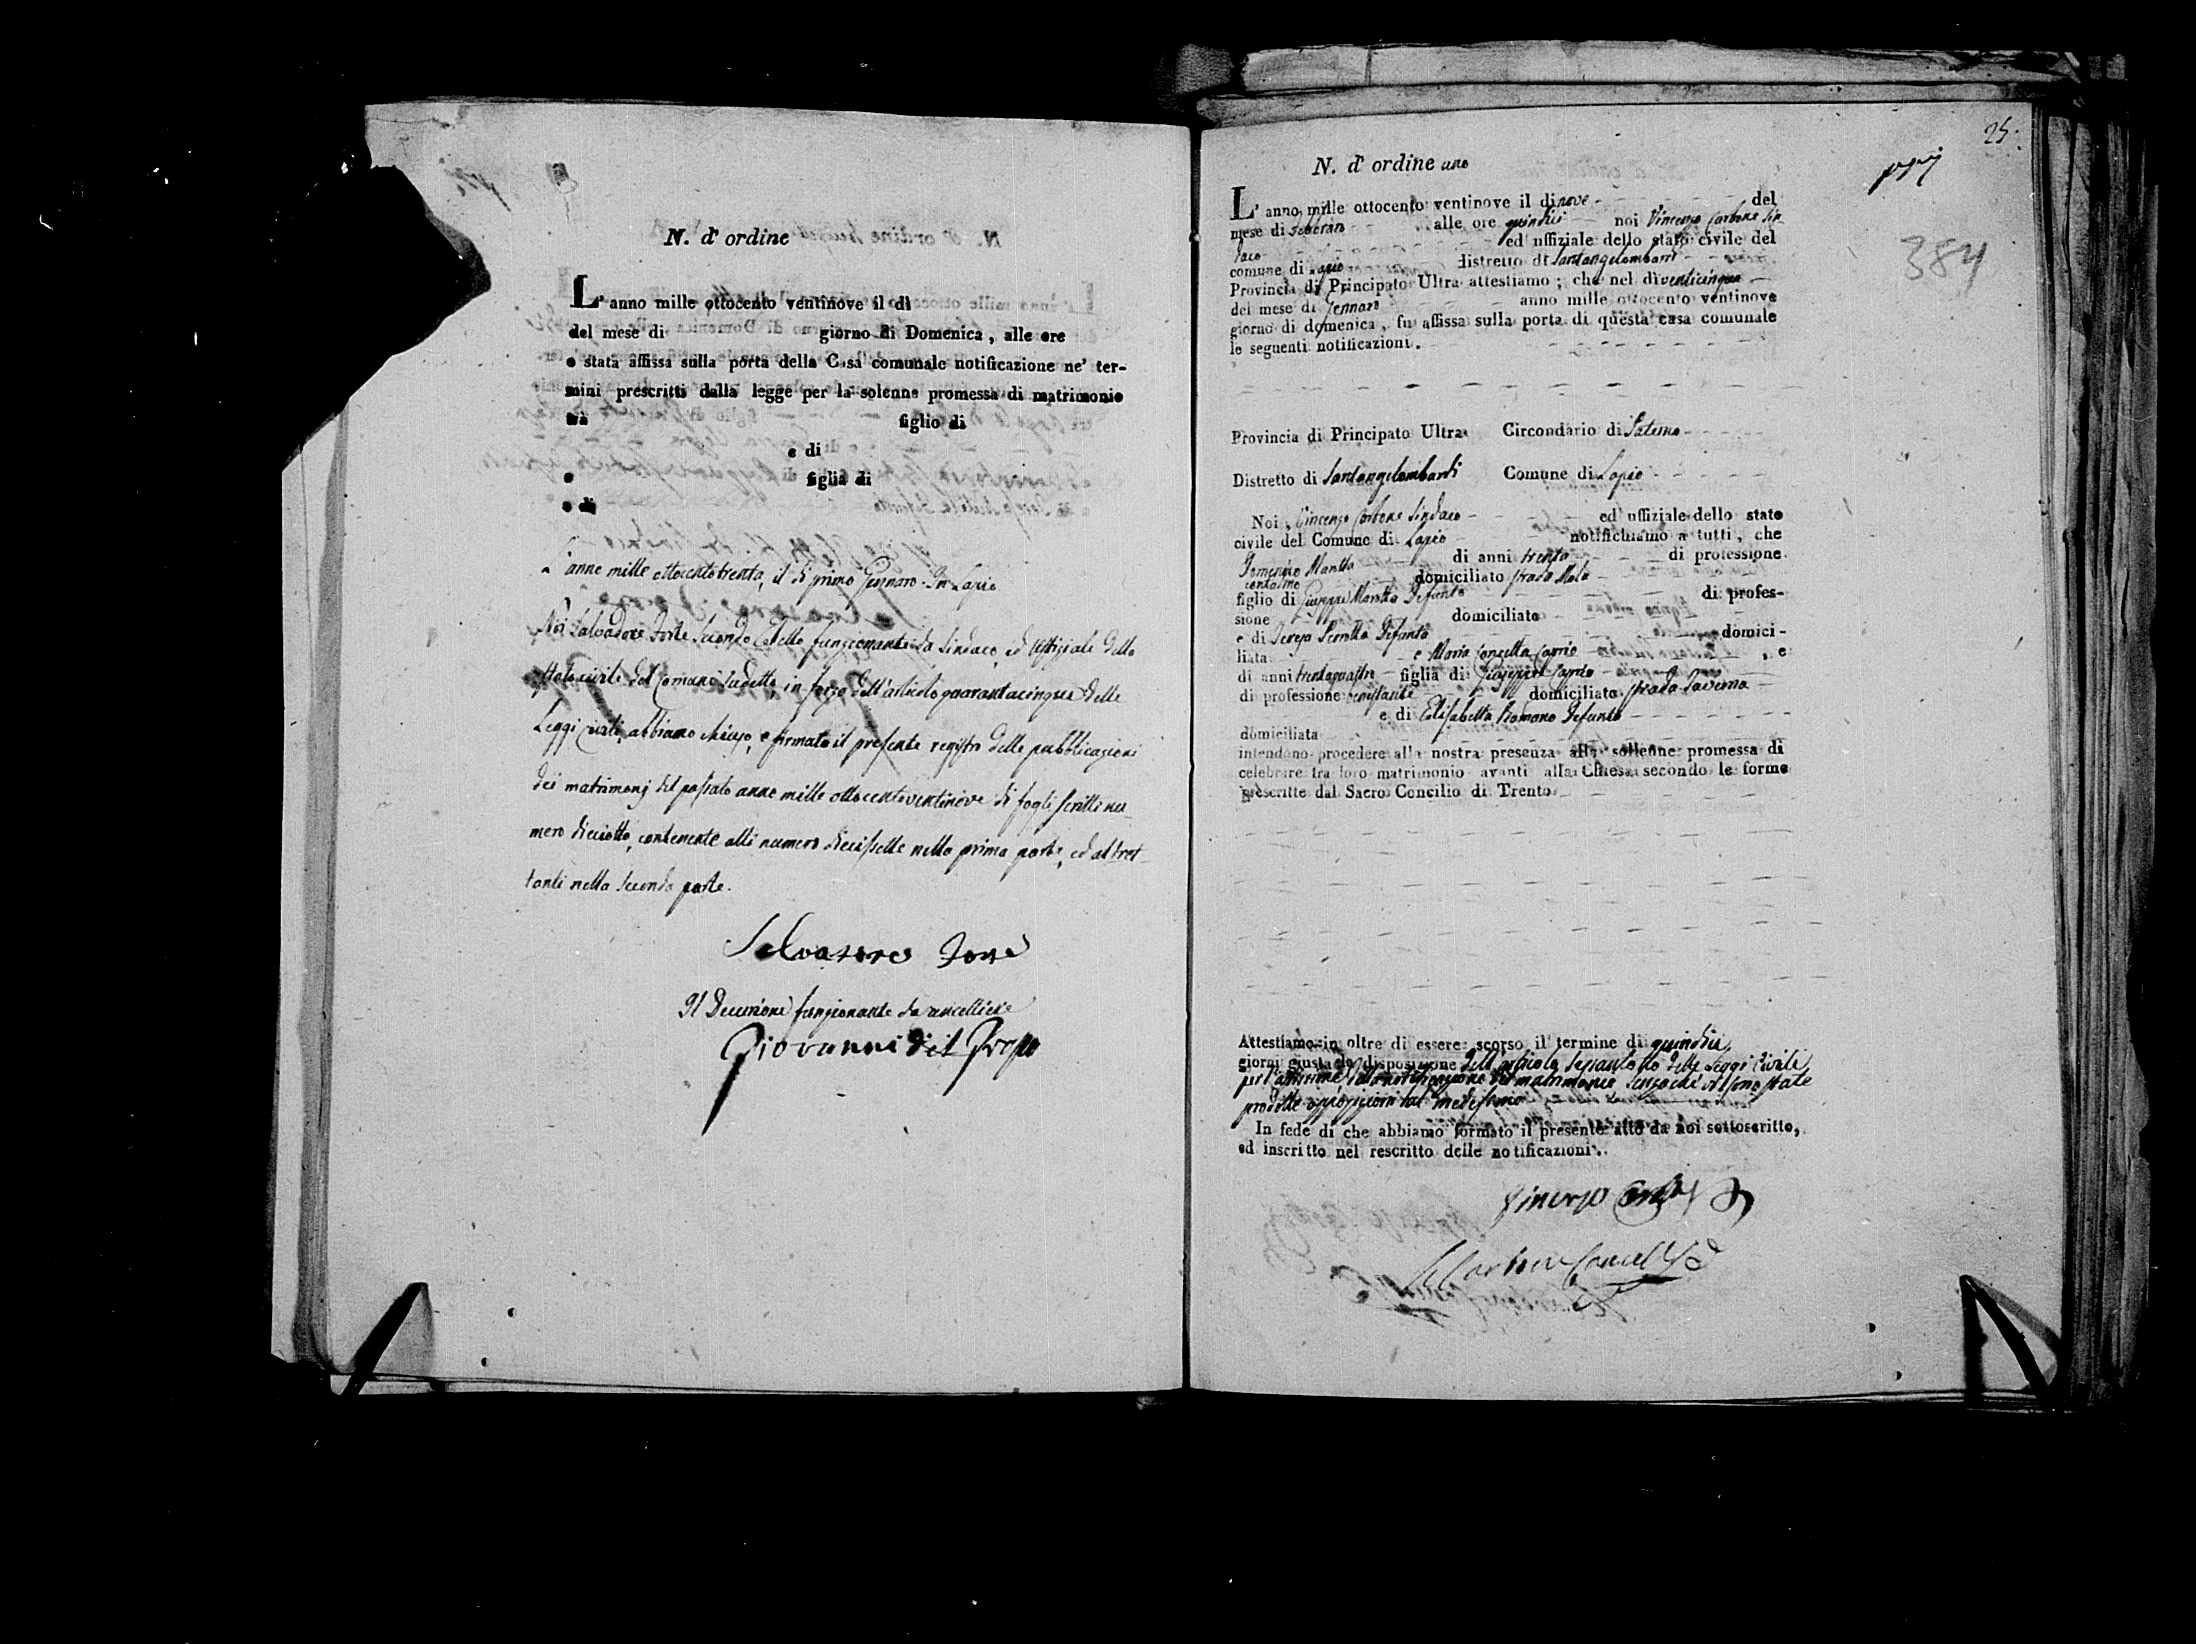 N. d' ordine
L' anno mille ottocento ventinove il dì
del mese di giorno di Domenica, alle ore
e stata affissa sulla porta della Casa comunale notificazione ne' ter-
mini prescritti dalla legge per la solenne promessa di matrimonio
trà figlio di
e di
e figlia di
e di
L'anno mille ottocentotrenta, il dì primo Gennaro. In Lapio
Noi Salvadore Forte Secondo Eletto funzionante da Sindaco, ed Uffiziale dello
stato civile del Comune sudetto, in forza dell'articolo quarantacinque delle
Leggi civili, abbiamo chiuso, e firmato il presente registro delle pubblicazioni
dei matrimonj del passato anno mille ottocentoventinove di fogli scritti nu-
mero dieciotto, contenente atti numero diecissette nella prima parte, ed altret-
tanti nella seconda parte.
Salvatore Forte
Il Decurione funzionante da Cancelliere
Giovanni del
25.
N. d' ordine uno
384
L' anno mille ottocento ventinove il dì nove del
mese di Febraro alle ore quindici noi Vincenzo Carbone Sin-
daco ed uffiziale dello stato civile del
comune di Lapio distretto di Santangelombardi
Provincia di Principato Ultra attestiamo; che nel dì venticinque
del mese di Gennaro anno mille ottocento ventinove
giorno di domenica, fu affissa sulla porta di questa casa comunale
le seguenti notificazioni.
Provincia di Principato Ultra Circondario di Paterno
Distretto di Santangelombardi Comune di Lapio
Noi, Vincenzo Carbone Sindaco ed uffiziale dello stato
civile del Comune di Lapio notifichiamo a tutti, che
Domenico Manetta di anni trenta di professione
domiciliato strada Mele
figlio di Giuseppe Manetta Defunto di profes-
sione domiciliato
e di Teresa Defunta domici-
liata e Maria Concetta Caprio, e
di anni trentaquattro figlia di Giuseppe Caprio
di professione domiciliato strada Taverna
e di Elisabetta Romano Defunta
domiciliata
intendono procedere alla nostra presenza alla sollenne promessa di
celebrare tra loro matrimonio avanti alla Chiesa secondo le forme
prescritte dal Sacro Concilio di Trento.
Attestiamo in oltre di essere scorso il termine di quindici
giorni giusta la disposizione dell'articolo sessantotto delle Leggi Civili
per l'affissione della notificazione del matrimonio senza che vi sono state
prodotte opposizioni al medesimo
In fede di che abbiamo formato il presente atto da noi sottoscritto,
ed inscritto nel rescritto delle notificazioni.
Vincenzo Carbone